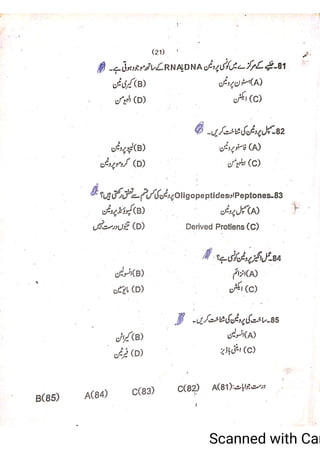 (21)
81- خلیے کے مرکزے میں کونسی پروٹین DNA اور RNA کے ساتھ موجود ہوتی ہے۔
(A) ہسٹون پروٹین (B) کیراٹین
(C) ایکٹن (D) البیومن
82- سمپل پروٹین کی شناخت کریں۔
(A) فاسفو پروٹین (B) لیپو پروٹین
(C) البیومن (D) کروموپروٹین
83- Peptones اور Oligopeptides پروٹین کی کونسی قسم سے تعلق رکھتی ہیں؟
(A) سمپل پروٹین (B) کمپاؤنڈ پروٹین
(C) Derived Protiens (D) تینوں درست ہیں
84- عمل انگیز پروٹین کونسی ہے؟
(A) انزائم (B) انسولین
(C) ایکٹن (D) مایوسین
85- ساخت کی پروٹین کی شناخت کریں۔
(A) انسولین (B) کیراٹن
(C) اینٹی باڈیز (D) فیریٹن
درست جوابات: A(81) C(82) C(83) A(84) B(85)
Scanned with Ca